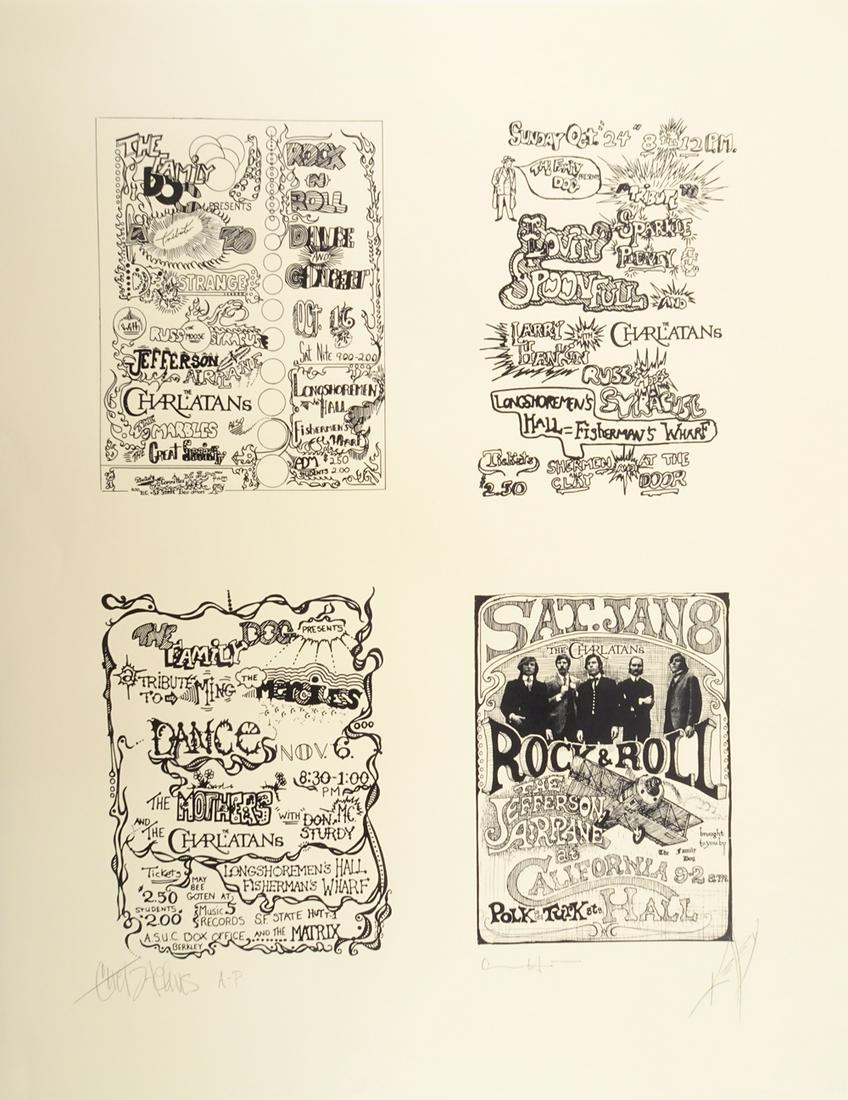 THE
FAMILY
DOG
PRESENTS
A Tribute TO
DR. STRANGE
With
RUSS THE MOOSE SYRACUSE
JEFFERSON
AIRPLANE
THE CHARLATANS
THE MARBLES ALSO
THE Great Society
ROCK
N
ROLL
DANCE
AND
CONCERT
OCT. 16
Sat Nite 9:00-2:00
LONGSHOREMEN'S
HALL
FISHERMEN'S
WHARF
ADM $2.50
STUDENTS 2.00
SUNDAY OCT. "24" 8 'til 12 P.M.
THE FAMILY
PRESENTS
DOG
A "TRIBUTE" TO
SPARKLE
PLENTY
THE
LOVIN'
SPOONFULL AND
LARRY
HANKIN
WITH THE CHARLATANS
RUSS
THE MOOSE
SYRACUSE
LONGSHOREMEN'S
HALL = FISHERMAN'S WHARF
Tickets
$2.50
SHERMEN
CLAY
AND AT THE
DOOR
THE
FAMILY
DOG
PRESENTS
A TRIBUTE
TO MING THE MERCILESS
DANCE NOV. 6.
8:30-1:00
PM
THE MOTHERS
"WITH" DON. MC.
STURDY
AND THE THE CHARLATANS
Tickets
$2.50
STUDENTS
$2.00
MAY
BEE
GOTEN AT
LONGSHOREMEN'S HALL
FISHERMEN'S WHARF
MUSIC 5
RECORDS S.F. STATE HUT T-1
A.S.U.C BOX OFFICE, AND THE MATRIX
BERKLEY
SAT. JAN 8
THE CHARLATANS
ROCK & ROLL
THE
JEFFERSON
AIRPLANE
at
brought
to you by
The Family
Dog
CALIFORNIA 9-2 a.m.
POLK at TURK sts HALL
A-P